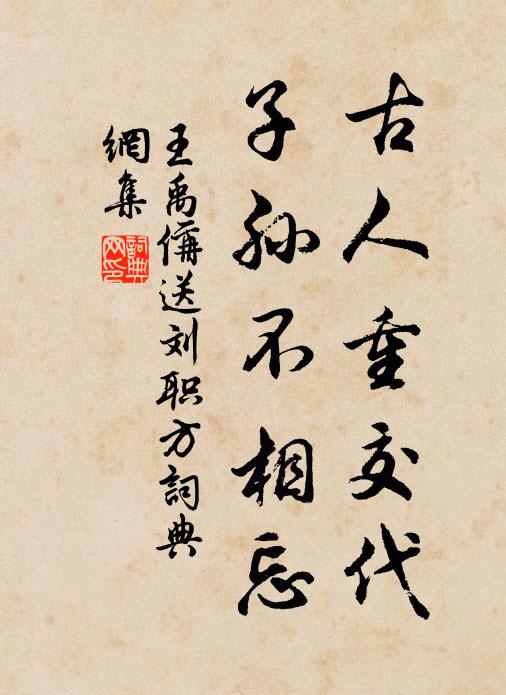 古人重交代
子孙不相忘
王禹偁送刘职方詞典
網集
詞典
网印